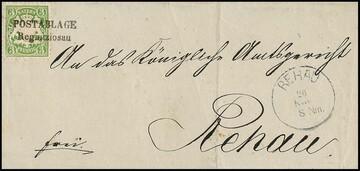 POSTABLAGE
Regnitzlosau
An das Königliche Amtsgericht
REHAU
26
8 Nm.
Rehau
frei